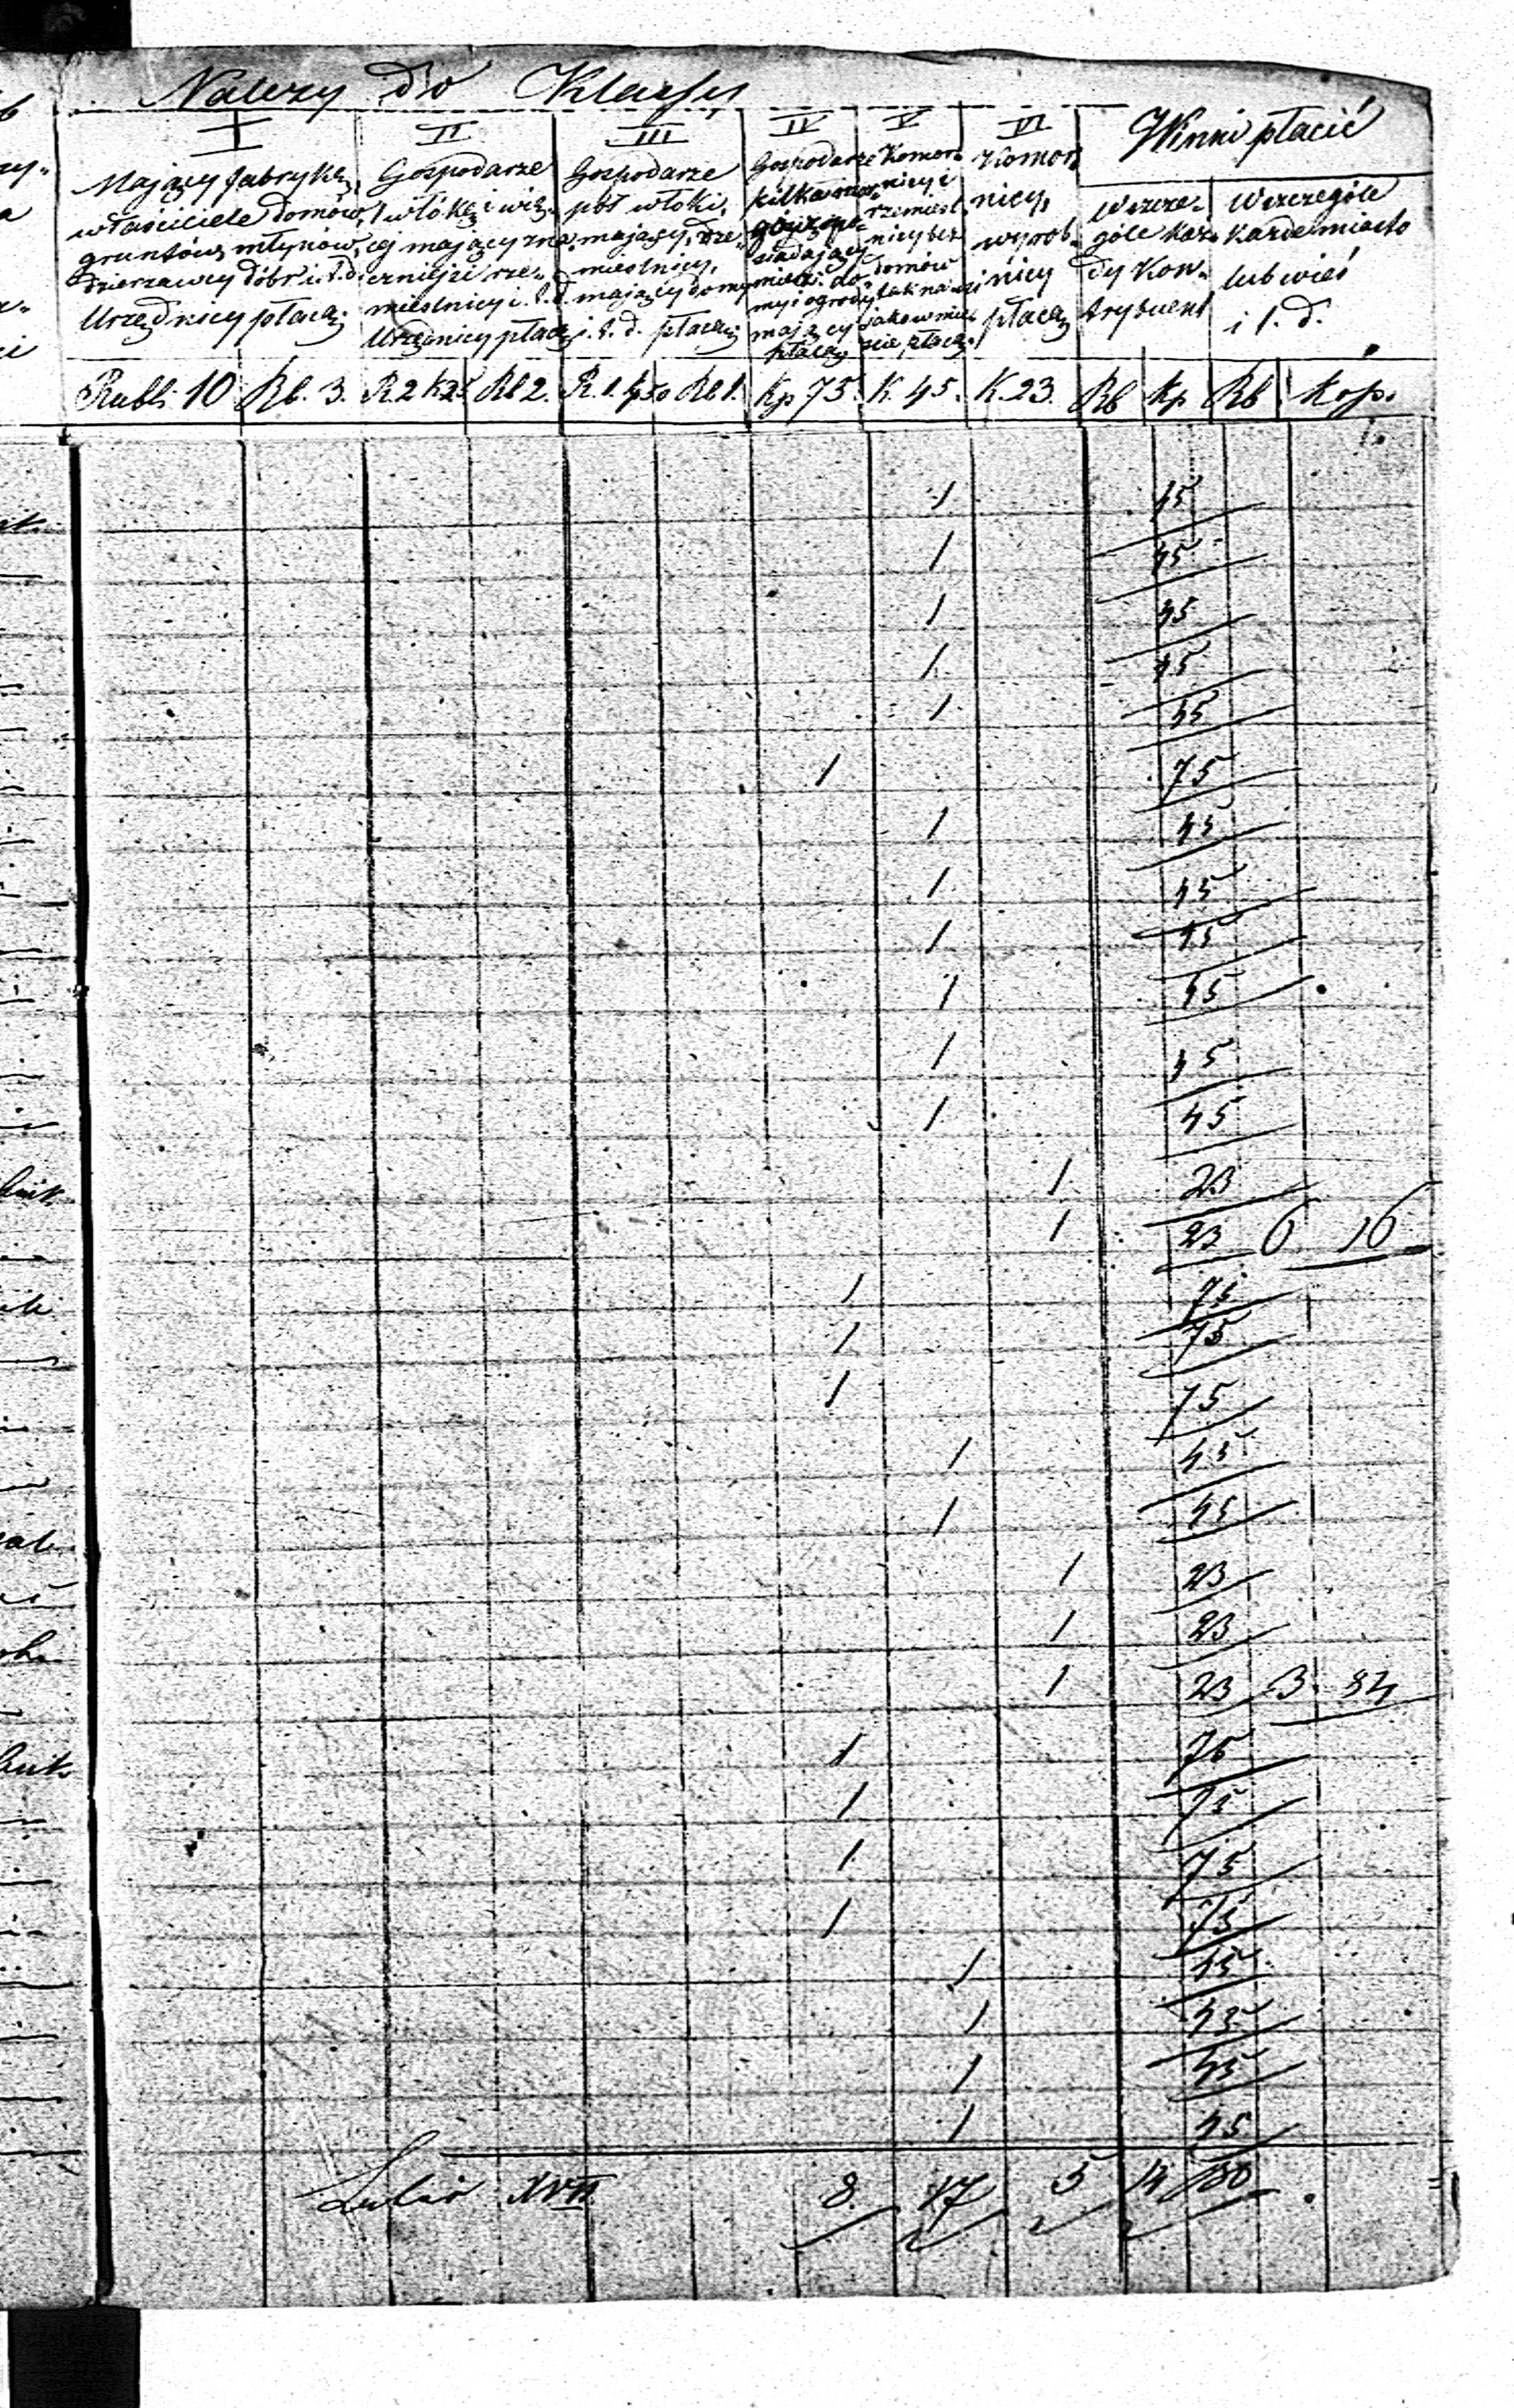 Należy do Klassy
I II III IV V VI Winni płacić
Mający fabrykę, właściciele domów, gruntów, młynów, dzierżawcy dóbr i t. d. Urzędnicy płacą
Gospodarze 1 włókę i więcej mający znaczniejsi rzemieślnicy i t. d. Urzędnicy płacą
Gospodarze pół włoki, mający, rzemieślnicy, mający domy i t. d. płacą
Gospodarze kilka posiadający domy i ogrody mający płacą
Komornicy i rzemieślnicy bez domów tak na wsi jako w mieście płacą
Komornicy, wyrobnicy płacą
Wszczególe każdy Kontrybuent
Wszczególe każde miasto lub wieś i t. d.
Rubli 10 Rb. 3. R 2 k 25 Rb 2. R. 1. k 50 Rb 1. Kp 75. K. 45. K. 23. Rb Kp Rb Kop.
1 45
1 45
1 45
1 45
1 45
1 75
1 45
1 45
1 45
1 45
1 45
1 45
1 23
1 23 6 16
1 75
1 75
1 75
1 45
1 45
1 23
1 23
1 23 3 84
1 75
1 75
1 75
1 75
1 45
1 45
1 45
1 45
Latus XVII 8 17 5 14 80